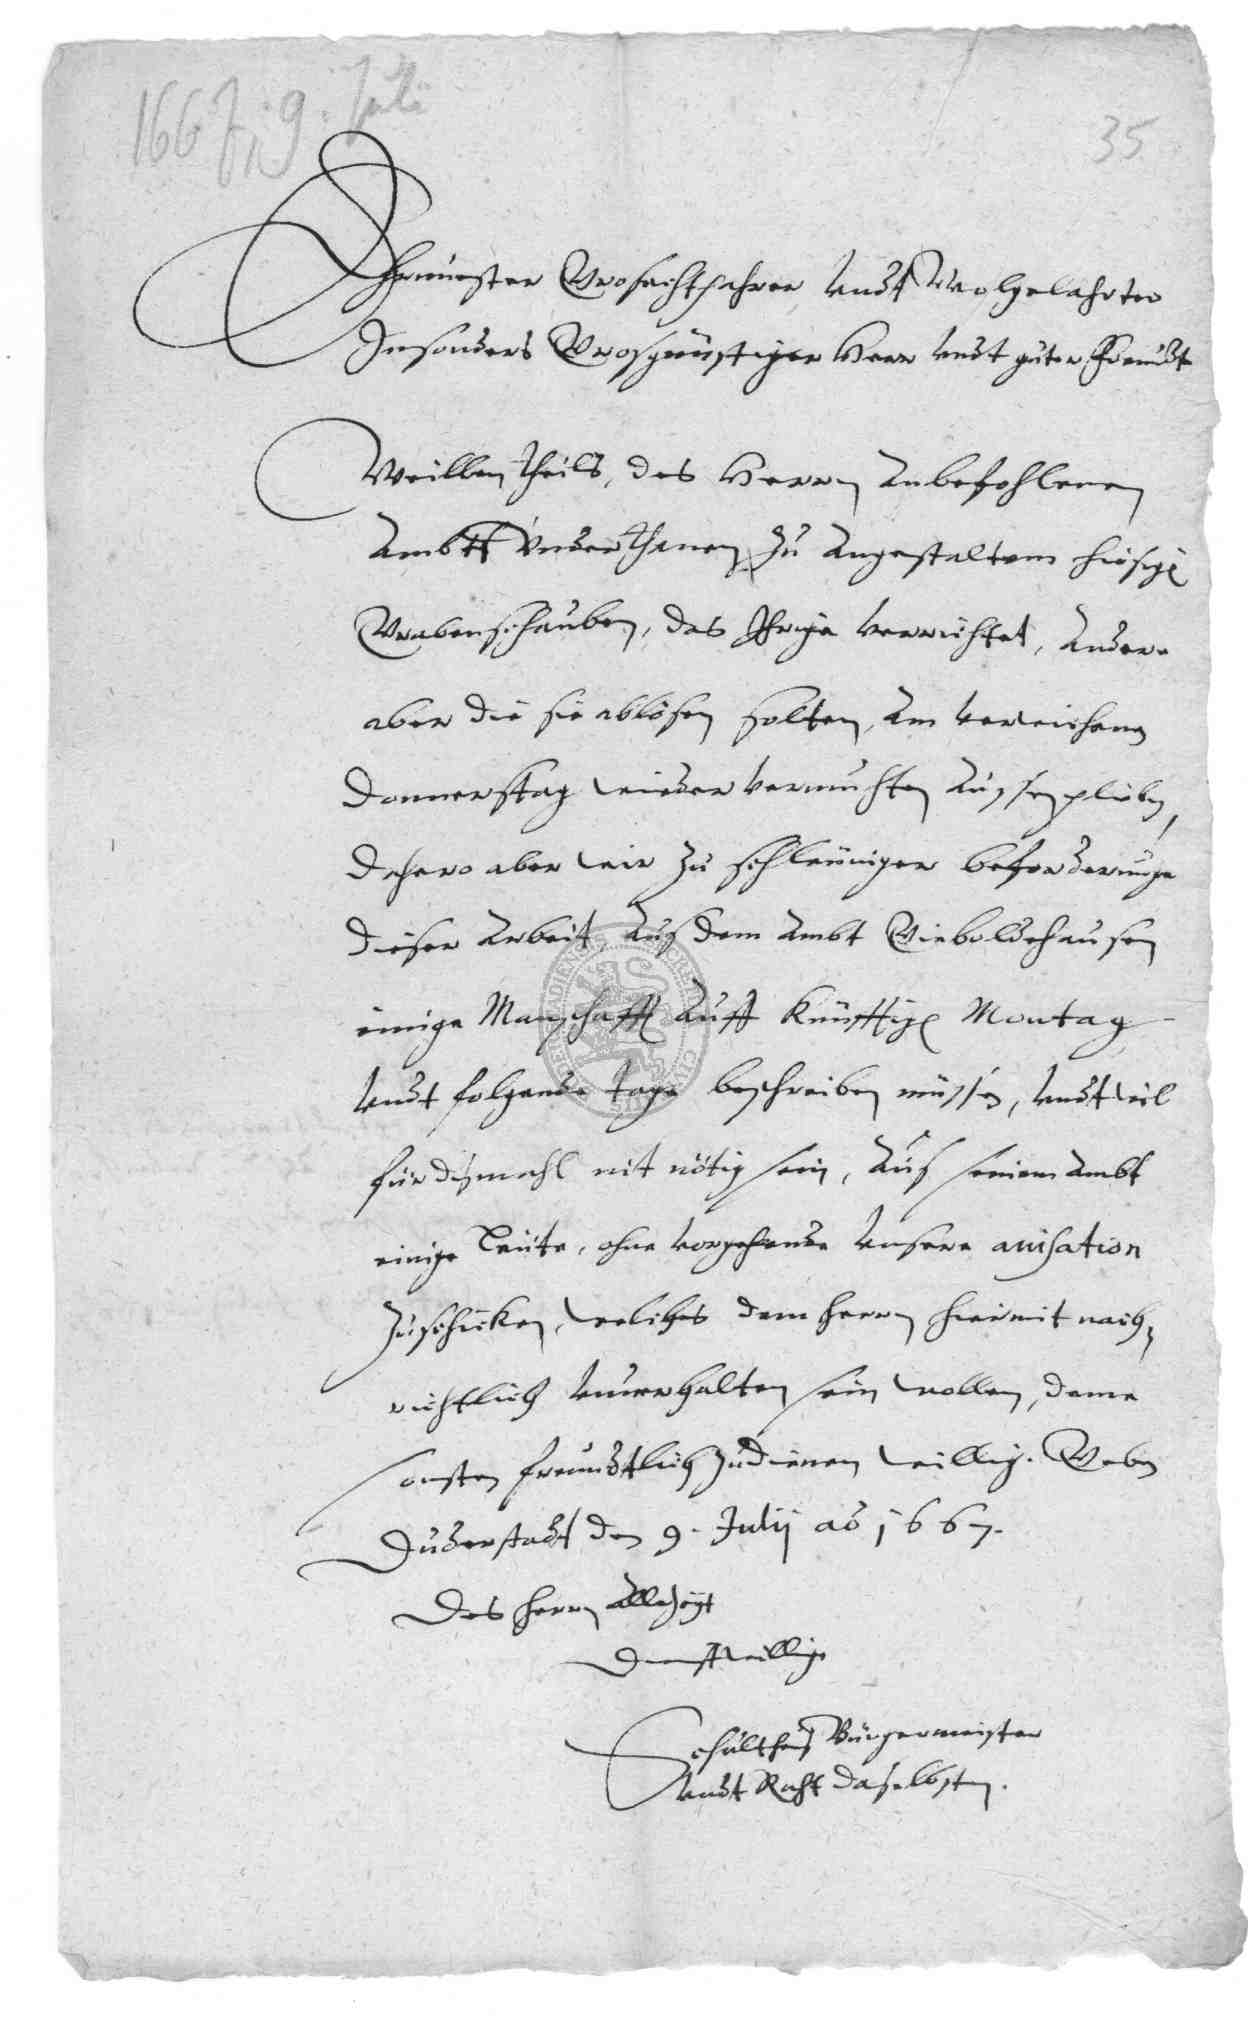 1667, 9. Juli
35
Ehrnuester Grosachtbahrer undt Wolgelahrter
Insonders Grosgünstiger Herr undt guter Freundt
Weillen theils, des Herrn Anbefohlenen
Ambtts Underthanen zu Angestaltem hiesige
Grabenschauben, das Ihrige verrichtet, Andere
aber die sie ablösen solten, Am verwichenen
Donnerstag wieder vermuhten Aussenplieben,
Dahero aber wir zu schleuniger beforderunge
dieser Arbeit, Aus dem Ambt Gieboldehausen
einige Manschafft Auff künfftige Montag
undt folgende tage beschreiben müssen, undt weil
für dismahl nit nötig sein, Aus seinem Ambt
einige Leute, ohne vorgehende unsere avisation
zuschicken, welches dem Herrn hiermit nach,
richtlich unverhalten sein wollen, deme
sonsten freundtlich zudienen willig. Geben
Duderstadt den 9. Julij ao 1667.
Des Herrn Allezeit
Dienstwillige
Schultheis Bürgermeister
undt Raht daselbsten.